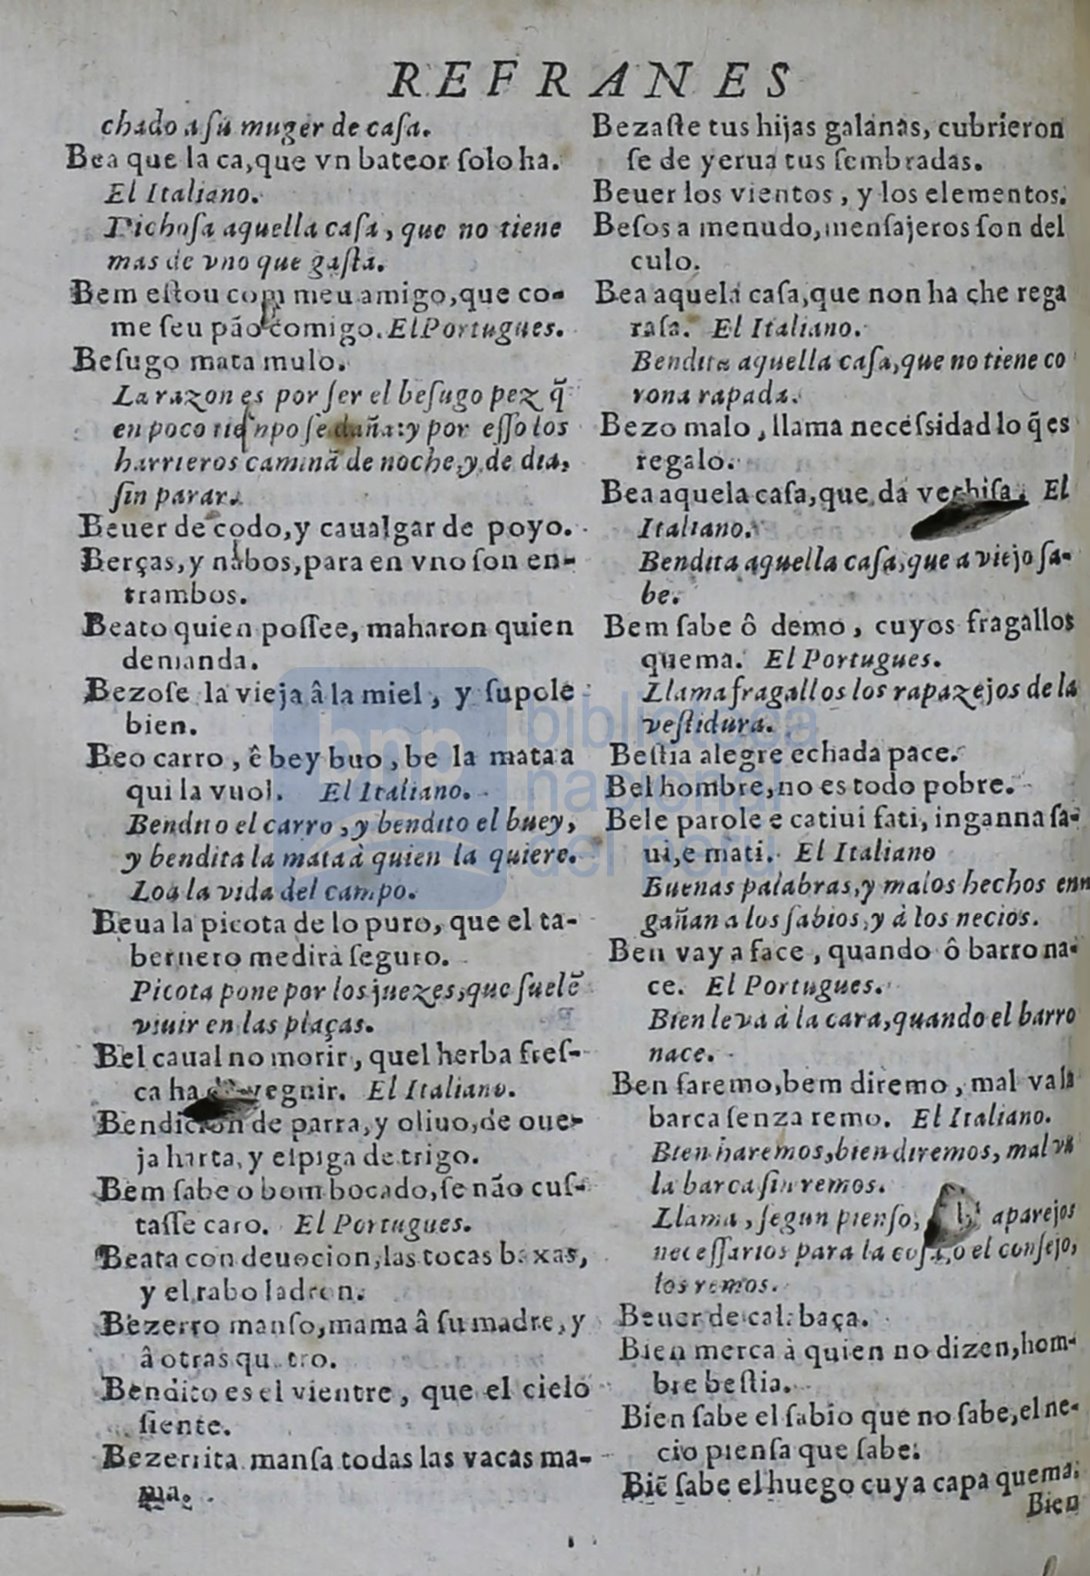 REFRANES
chado a ſu muger de caſa.
Bea que la ca, que vn bateor ſolo ha.
El Italiano.
Dichoſa aquella caſa, que no tiene
mas de vno que gaſta.
Bem eſtou com meu amigo, que co-
me ſeu pão comigo. El Portugues.
Beſugo mata mulo.
La razon es por ſer el beſugo pez q̃
en poco tiempo ſe daña: y por eſſo los
harrieros caminã de noche, y de dia,
ſin parar.
Beuer de codo, y caualgar de poyo.
Berças, y nabos, para en vno ſon en-
trambos.
Beato quien poſſee, maharon quien
demanda.
Bezoſe la vieja â la miel, y ſupole
bien.
Beo carro, ê bey buo, be la mata a
qui la vuol. El Italiano.
Bendito el carro, y bendito el buey,
y bendita la mata à quien la quiere.
Loa la vida del campo.
Beua la picota de lo puro, que el ta-
bernero medirà ſeguro.
Picota pone por los juezes, que ſuelẽ
viuir en las plaças.
Bel caual no morir, quel herba freſ-
ca ha de veguir. El Italiano.
Bendicion de parra, y oliuo, de oue-
ja harta, y eſpiga de trigo.
Bem ſabe o bom bocado, ſe não cuſ-
taſſe caro. El Portugues.
Beata con deuocion, las tocas baxas,
y el rabo ladron.
Bezerro manſo, mama â ſu madre, y
â otras quatro.
Bendito es el vientre, que el cielo
ſiente.
Bezerrita manſa todas las vacas ma-
ma.
Bezaſte tus hijas galanas, cubrieron
ſe de yerua tus ſembradas.
Beuer los vientos, y los elementos.
Beſos a menudo, menſajeros ſon del
culo.
Bea aquela caſa, que non ha che rega
raſa. El Italiano.
Bendita aquella caſa, que no tiene co
rona rapada.
Bezo malo, llama neceſsidad lo q̃ es
regalo.
Bea aquela caſa, que da El
Italiano.
Bendita aquella caſa, que a viejo ſa-
be.
Bem ſabe ô demo, cuyos fragallos
quema. El Portugues.
Llama fragallos los rapazejos de la
veſtidura.
Beſtia alegre echada pace.
Bel hombre, no es todo pobre.
Bele parole e catiui fati, inganna ſa-
ui, e mati. El Italiano
Buenas palabras, y malos hechos enn
gañan a los ſabios, y à los necios.
Ben vay a face, quando ô barro na-
ce. El Portugues.
Bien le va à la cara, quando el barro
nace.
Ben faremo, bem diremo, mal va la
barca ſenza remo. El Italiano.
Bien haremos, bien diremos, mal va
la barca ſin remos.
Llama, ſegun pienſo, aparejos
neceſſarios para la coſa, o el conſejo,
los remos.
Beuer de calabaça.
Bien merca à quien no dizen, hom-
bre beſtia.
Bien ſabe el ſabio que no ſabe, el ne-
cio pienſa que ſabe.
Biẽ ſabe el huego cuya capa quema.
Bien
bnp biblioteca
nacional
del perú